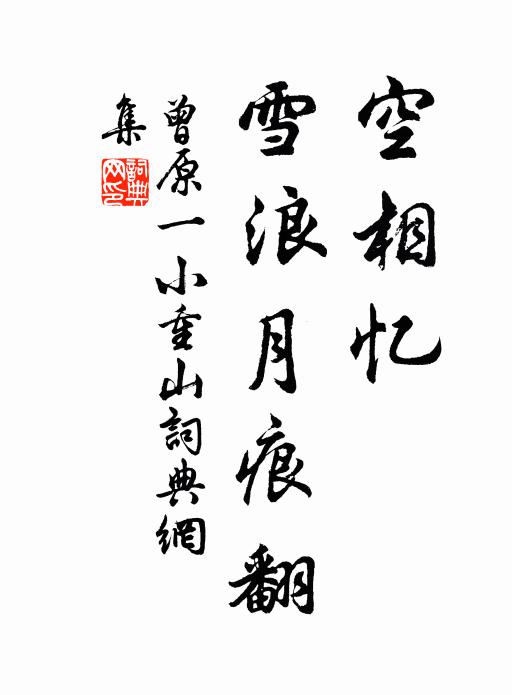 空相忆
雪浪月痕翻
曾原一小重山詞典網
集
詞典網印